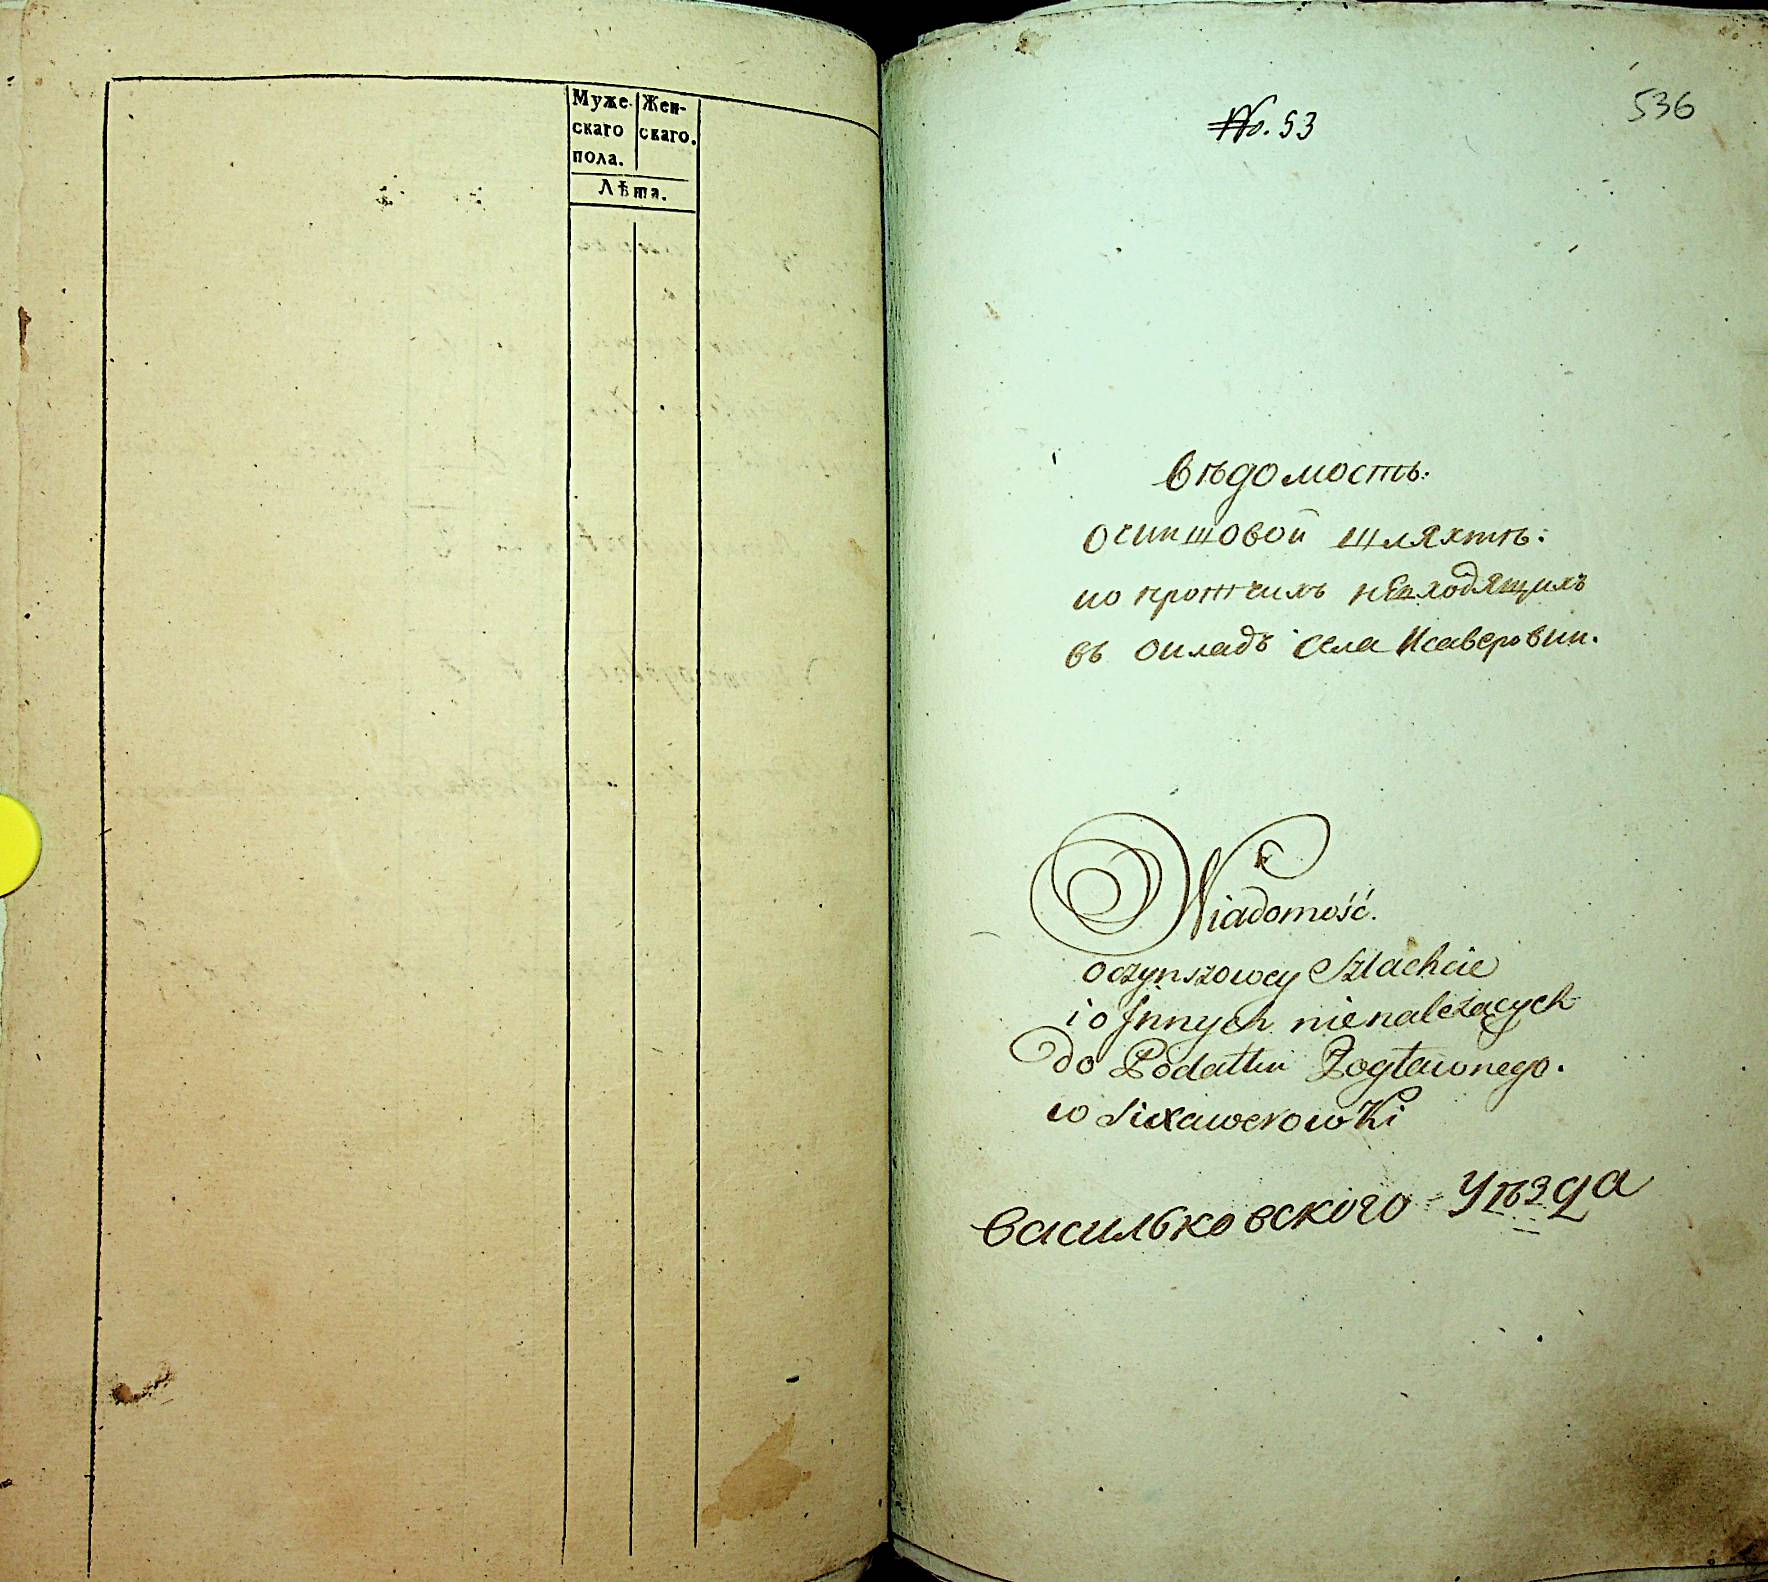 Муже- Жен-
скаго скаго.
пола.
Лѣта.
536
№. 53
Вѣдомость.
О чиншовой шляхтѣ:
ио протчихъ невходящихъ
въ окладъ Села Ксаверовки.
Wiadomość.
o czynszowey Szlachcie
i o Jnnych nienależących
do Podatku Pogłównego.
w Xawerowki
Васильковского Уѣзда